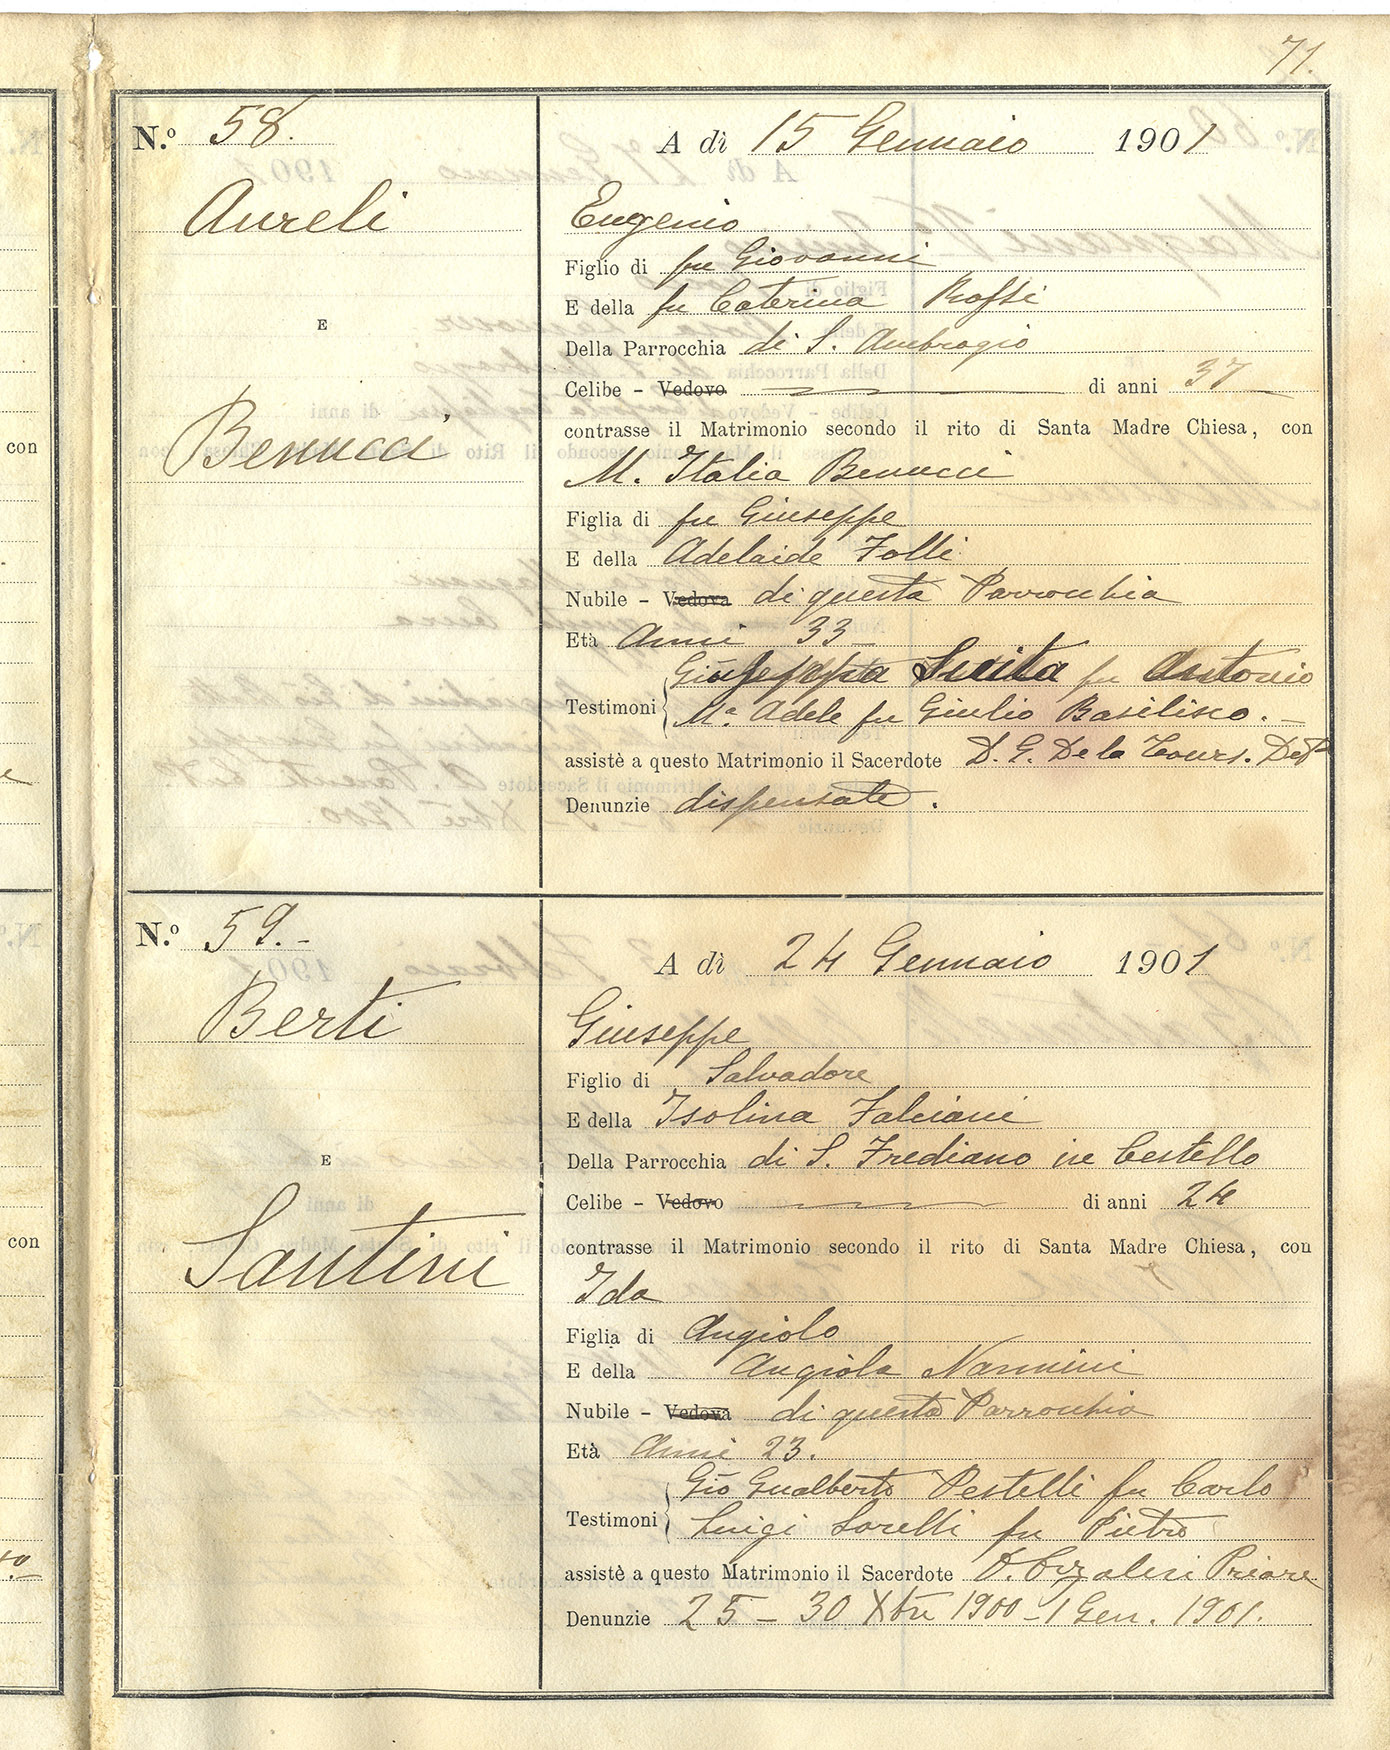 71.
N.º 58.
Aureli
E
Benucci
A dì 15 Gennaio 1901
Eugenio
Figlio di fu Giovanni
E della fu Caterina Rossi
Della Parrocchia di S. Ambrogio
Celibe - Vedovo di anni 37
contrasse il Matrimonio secondo il rito di Santa Madre Chiesa, con
M. Italia Benucci
Figlia di fu Giuseppe
E della Adelaide Folli
Nubile - Vedova di questa Parrocchia
Età Anni 33
fu Antonio
Testimoni
M.ª Adele fu Giulio Basilisco.
assistè a questo Matrimonio il Sacerdote D. G. De la
Denunzie dispensate.
N.º 59.-
Berti
E
Santini
A dì 24 Gennaio 1901
Giuseppe
Figlio di Salvadore
E della Isolina Falciani
Della Parrocchia di S. Frediano in Cestello
Celibe - Vedovo di anni 24
contrasse il Matrimonio secondo il rito di Santa Madre Chiesa, con
Ida
Figlia di Angiolo
E della Angiola Nannini
Nubile - Vedova di questa Parrocchia
Età Anni 23.
Gio Gualberto Pestelli fu Carlo
Testimoni
Luigi Sorelli fu Pietro
assistè a questo Matrimonio il Sacerdote Priore
Denunzie 25 - 30 Xbre 1900 - 1 Gen. 1901.
con
con